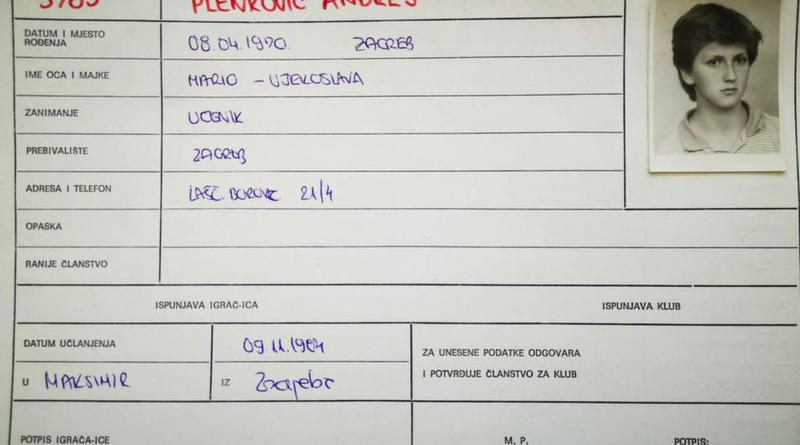 3785
PLENKOVIĆ ANDREJ
DATUM I MJESTO ROĐENJA
08.04.1970. ZAGREB
IME OCA I MAJKE
MARIO - VJEKOSLAVA
ZANIMANJE
UČENIK
PREBIVALIŠTE
ZAGREB
ADRESA I TELEFON
LAŠĆ. BOROVEC 21/4
OPASKA
RANIJE ČLANSTVO
ISPUNJAVA IGRAČ-ICA
ISPUNJAVA KLUB
DATUM UČLANJENJA
09.11.1984
ZA UNESENE PODATKE ODGOVARA
I POTVRĐUJE ČLANSTVO ZA KLUB
U MAKSIMIR
IZ Zagreba
POTPIS IGRAČA-ICE
M. P.
POTPIS: